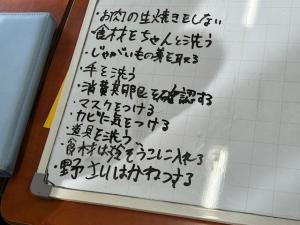 ・お肉の生焼きをしない
・食材をちゃんと洗う
・じゃがいもの芽を取る
・手を洗う
・消費期限を確認する
・マスクをつける
・カビに気をつける
・道具を洗う
・食材は冷ぞうこに入れる
・野さいはかねつする